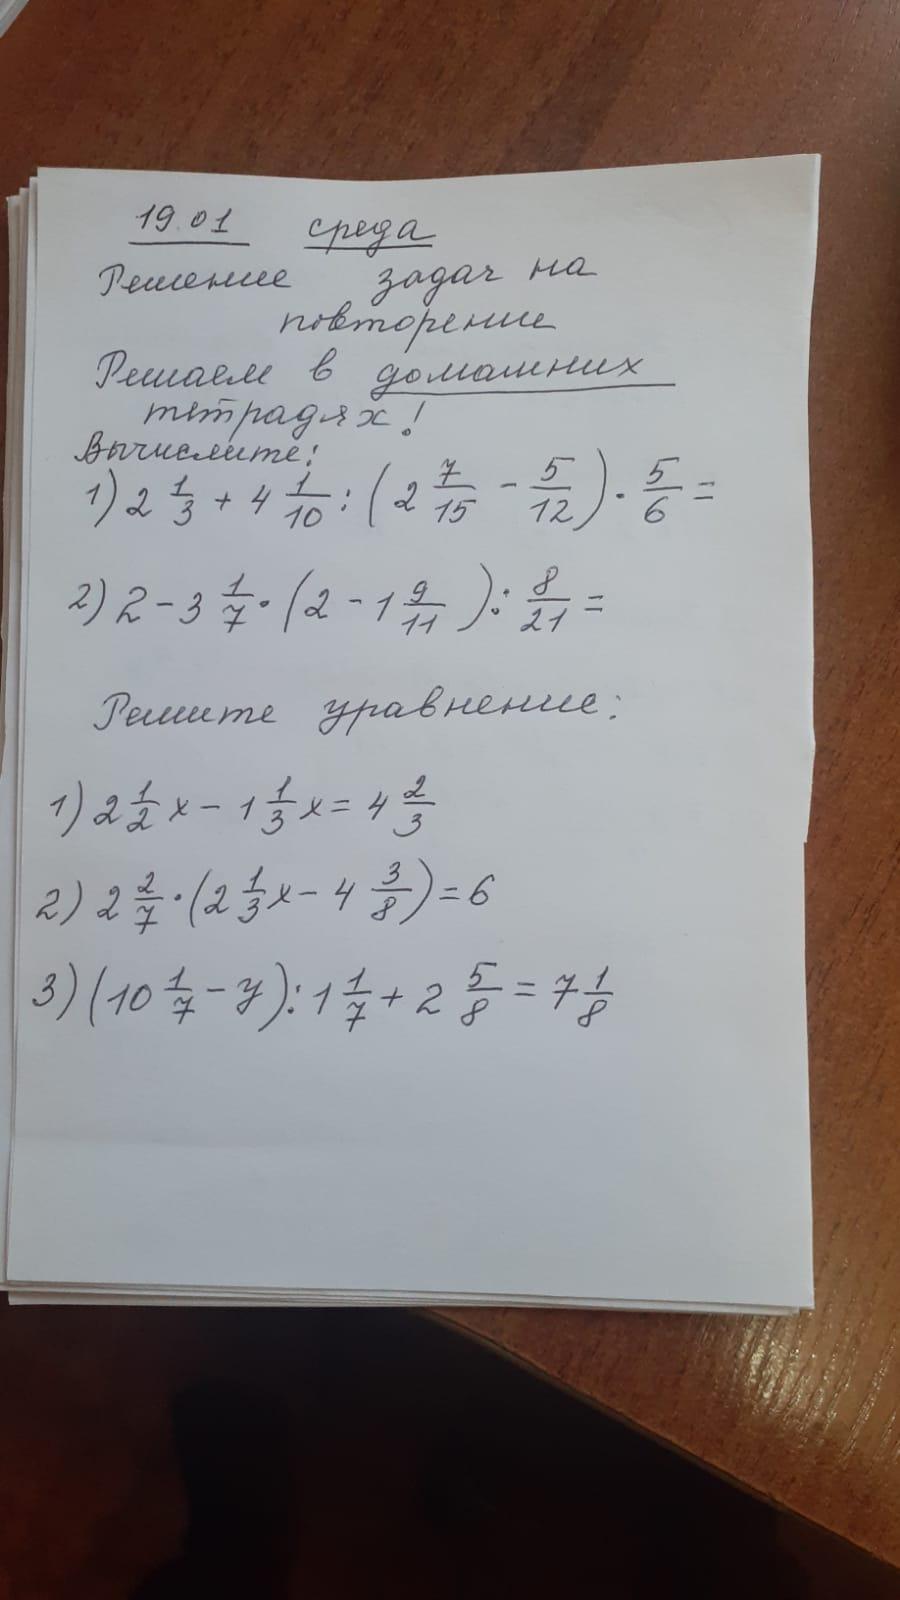 19.01 среда
Решение задач на
повторение
Решаем в домашних
тетрадях!
Вычислите:
1) 2 1/3 + 4 1/10 : (2 7/15 - 5/12) · 5/6 =
2) 2 - 3 1/7 · (2 - 1 9/11) : 8/21 =
Решите уравнение:
1) 2 1/2 x - 1 1/3 x = 4 2/3
2) 2 2/7 · (2 1/3 x - 4 3/8) = 6
3) (10 1/7 - y) : 1 1/7 + 2 5/8 = 7 1/8